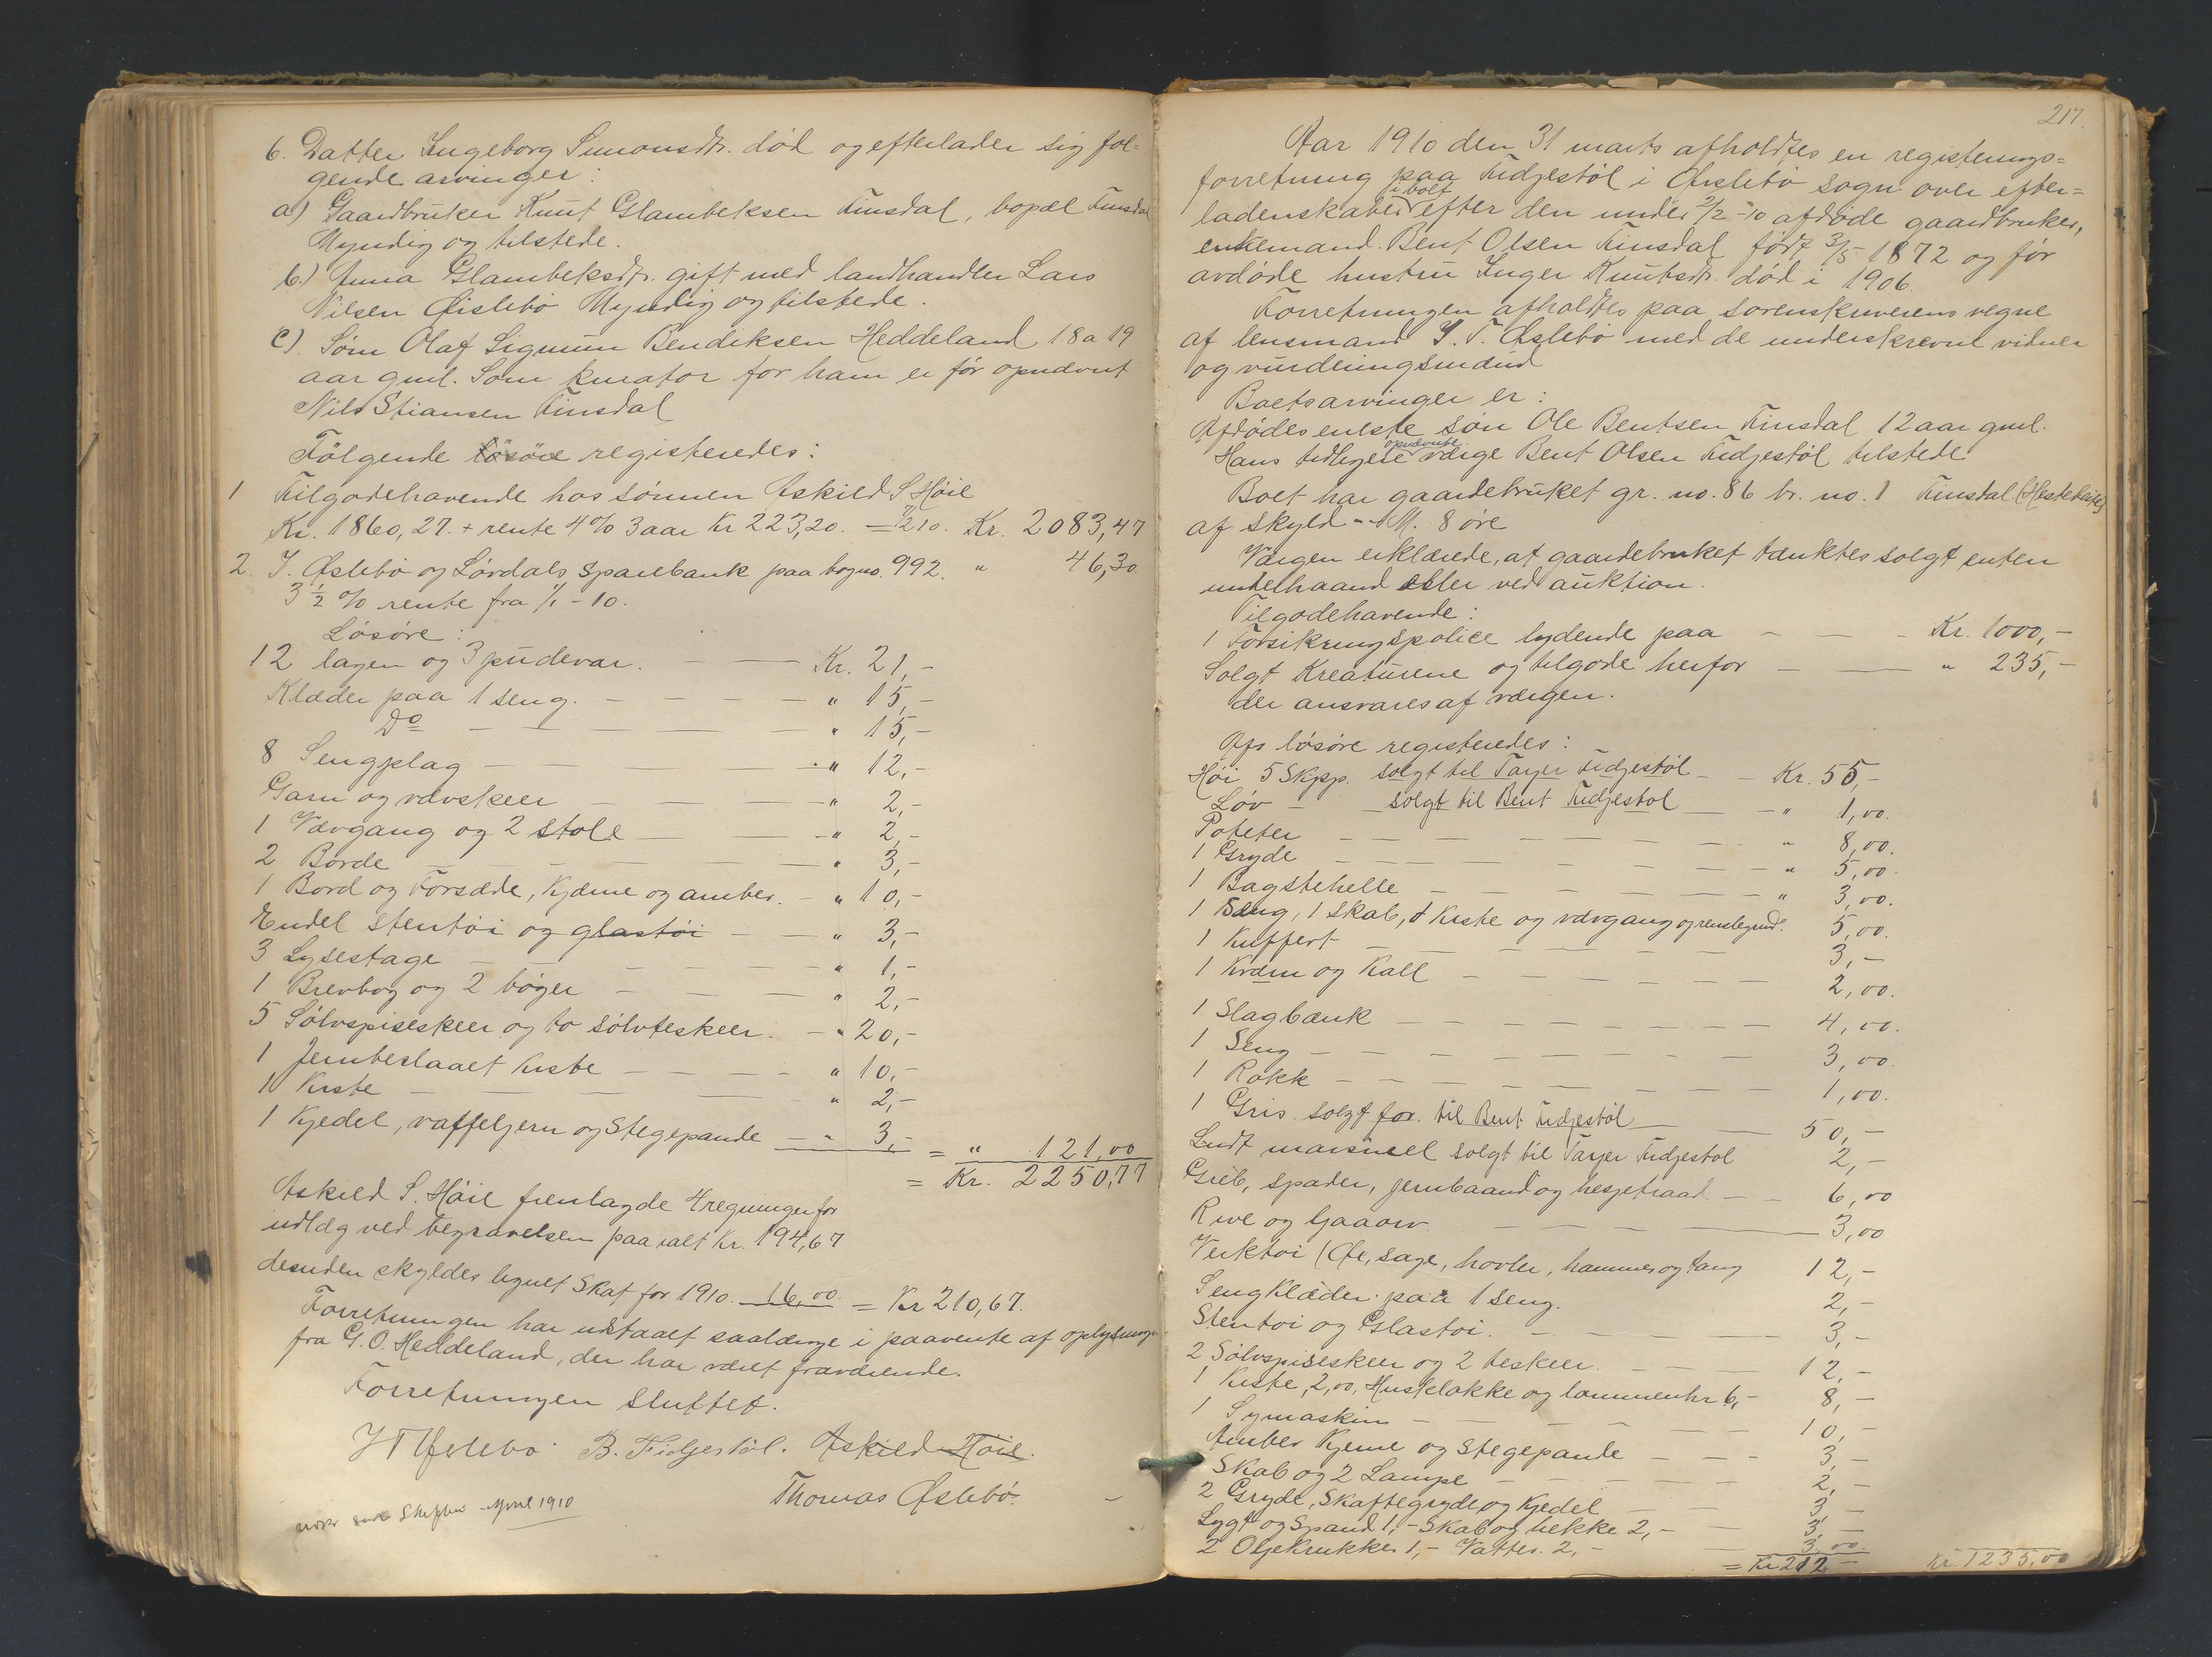 6. Datter Ingeborg Simonsdtr. død og efterlader sig føl=
gende arvinger:
a) Gaardbruker Knut Glambeksen Finsdal, bopæl Finsdal
Myndig og tilstede.
b.) Anna Glambeksdtr. gift med landhandler Lars
Nilsen Øislebø Myndig og tilstede.
c). Søn Olaf Sigmun Bendiksen Heddeland 18 a 19
aar gml. Som kurator for ham er før opnævnt
Nils Stiansen Finsdal
Følgende løsøre registeredes:
1 Tilgodehavende hos sønnen Askild S Høie
Kr. 1860,27. + rente 4% 3 aar Kr 223,20. = Kr. 2083,47
2. I. Øslebø og Løvdals sparebank paa bog no. 992. " 46,30
3 1/2 % rente fra 1/1 - 10.
Løsøre:
12 lagen og 3 pudevar. — Kr. 21,-
Klæder paa 1 seng. — " 15,-
Do — " 15,-
8 Sengplag — " 12,-
Garn og vævskeer — " 2,-
1 Vævgang og 2 stole — " 2,-
2 Borde — " 3,-
1 Bord og Forsæde, Kjærne og amber. — " 10,-
Endel stentøi og glastøi — " 3,-
3 Lysestage — " 1,-
1 Brevbog og 2 bøger — " 2,-
5 Sølvspiseskeer og to sølvteskeer. — " 20,-
1 Jernbeslaaet kiste — " 10,-
1 Kiste — " 2,-
1 Kjedel, vaffeljern og Stegepande — " 3,- = " 121,00
= Kr. 2250,77
Askild S. Høie fremlagde 4 regninger for
udlæg ved begravelsen paa ialt Kr. 194,67
desuden skyldes lignet Skat for 1910. 16,00 = Kr 210,67.
Forretningen har udstaaet saalænge i paavente af oplysninger
fra G. O. Heddeland, der har været fraværende.
Forretningen sluttet.
J T Øslebø. B. Fidjestøl. Askild Høie.
Thomas Øslebø.
April 1910
217.
Aar 1910 den 31 marts afholdtes en registerings=
forretning paa Fidjestøl i Øislebø sogn over efter=
ladenskaber i boet efter den under 2/2 - 10 afdøde gaardbruker,
enkemand. Bent Olsen Finsdal født 3/5 1872 og før
avdøde hustru Inger Knutsdtr. død i 1906.
Forretningen afholdtes paa sorenskriverens vegne
af lensmand J. T. Øslebø med de underskrevne vidner
og vurderingsmænd
Boets arvinger er:
Afdødes eneste søn Ole Bentsen Finsdal 12 aar gml.
Hans tidligere opnævnte værge Bent Olsen Fidjestøl tilstede
Boet har gaardebruket gr. no. 86 br. no. 1 Finsdal (Hesteheie)
af skyld - M. 8 øre
Værgen erklærede, at gaardebruket tænktes solgt enten
underhaand eller ved auktion.
Tilgodehavende:
1 Forsikringspolice lydende paa — Kr. 1000,-
Solgt Kreaturene og tilgode herfor — " 235,-
der ansvares af værgen.
Af løsøre registeredes:
Høi 5 Skpp. solgt til Tarjer Fidjestøl — Kr. 55,-
Løv — solgt til Bent Fidjestøl — " 1,00.
Poteter — " 8,00.
1 Gryde — " 5,00.
1 Bagstehelle — " 3,00.
1 Seng, 1 skab, 1 Kiste og vævgang og 5,00.
1 Kuffert — 3,-
1 Kværn og Kall — 2,00.
1 Slagbænk — 4,00.
1 Seng — 3,00.
1 Rokk — 1,00.
1 Gris. solgt for. til Bent Fidjestøl — 50,-
Lidt solgt til Tarjer Fidjestøl 2,-
Greb, spader, jernbaand og hesjetraad. — 6,00
Rive og — 3,00
Verktøi (Øxe, sage, hovler, hammer og tang 12,-
Sengklæder paa 1 seng. 2,-
Stentøi og Glastøi. — 3,-
2 Sølvspiseskeer og 2 teskeer. — 12,-
1 Kiste, 2,00, Husklokke og lommeuhr 6,- 8,-
1 Symaskin — 10,-
Amber Kjerne og Stegepande — 3,-
Skab og 2 Lampe — 2,-
2 Gryde, Skaftegryde og Kjedel — 3,-
Lygt og Spand 1,- Skab og bekke 2,- — 3,-
2 Oljekrukker 1,- Vatter. 2,- 3,00.
= Kr 212 - Kr. 1235,00